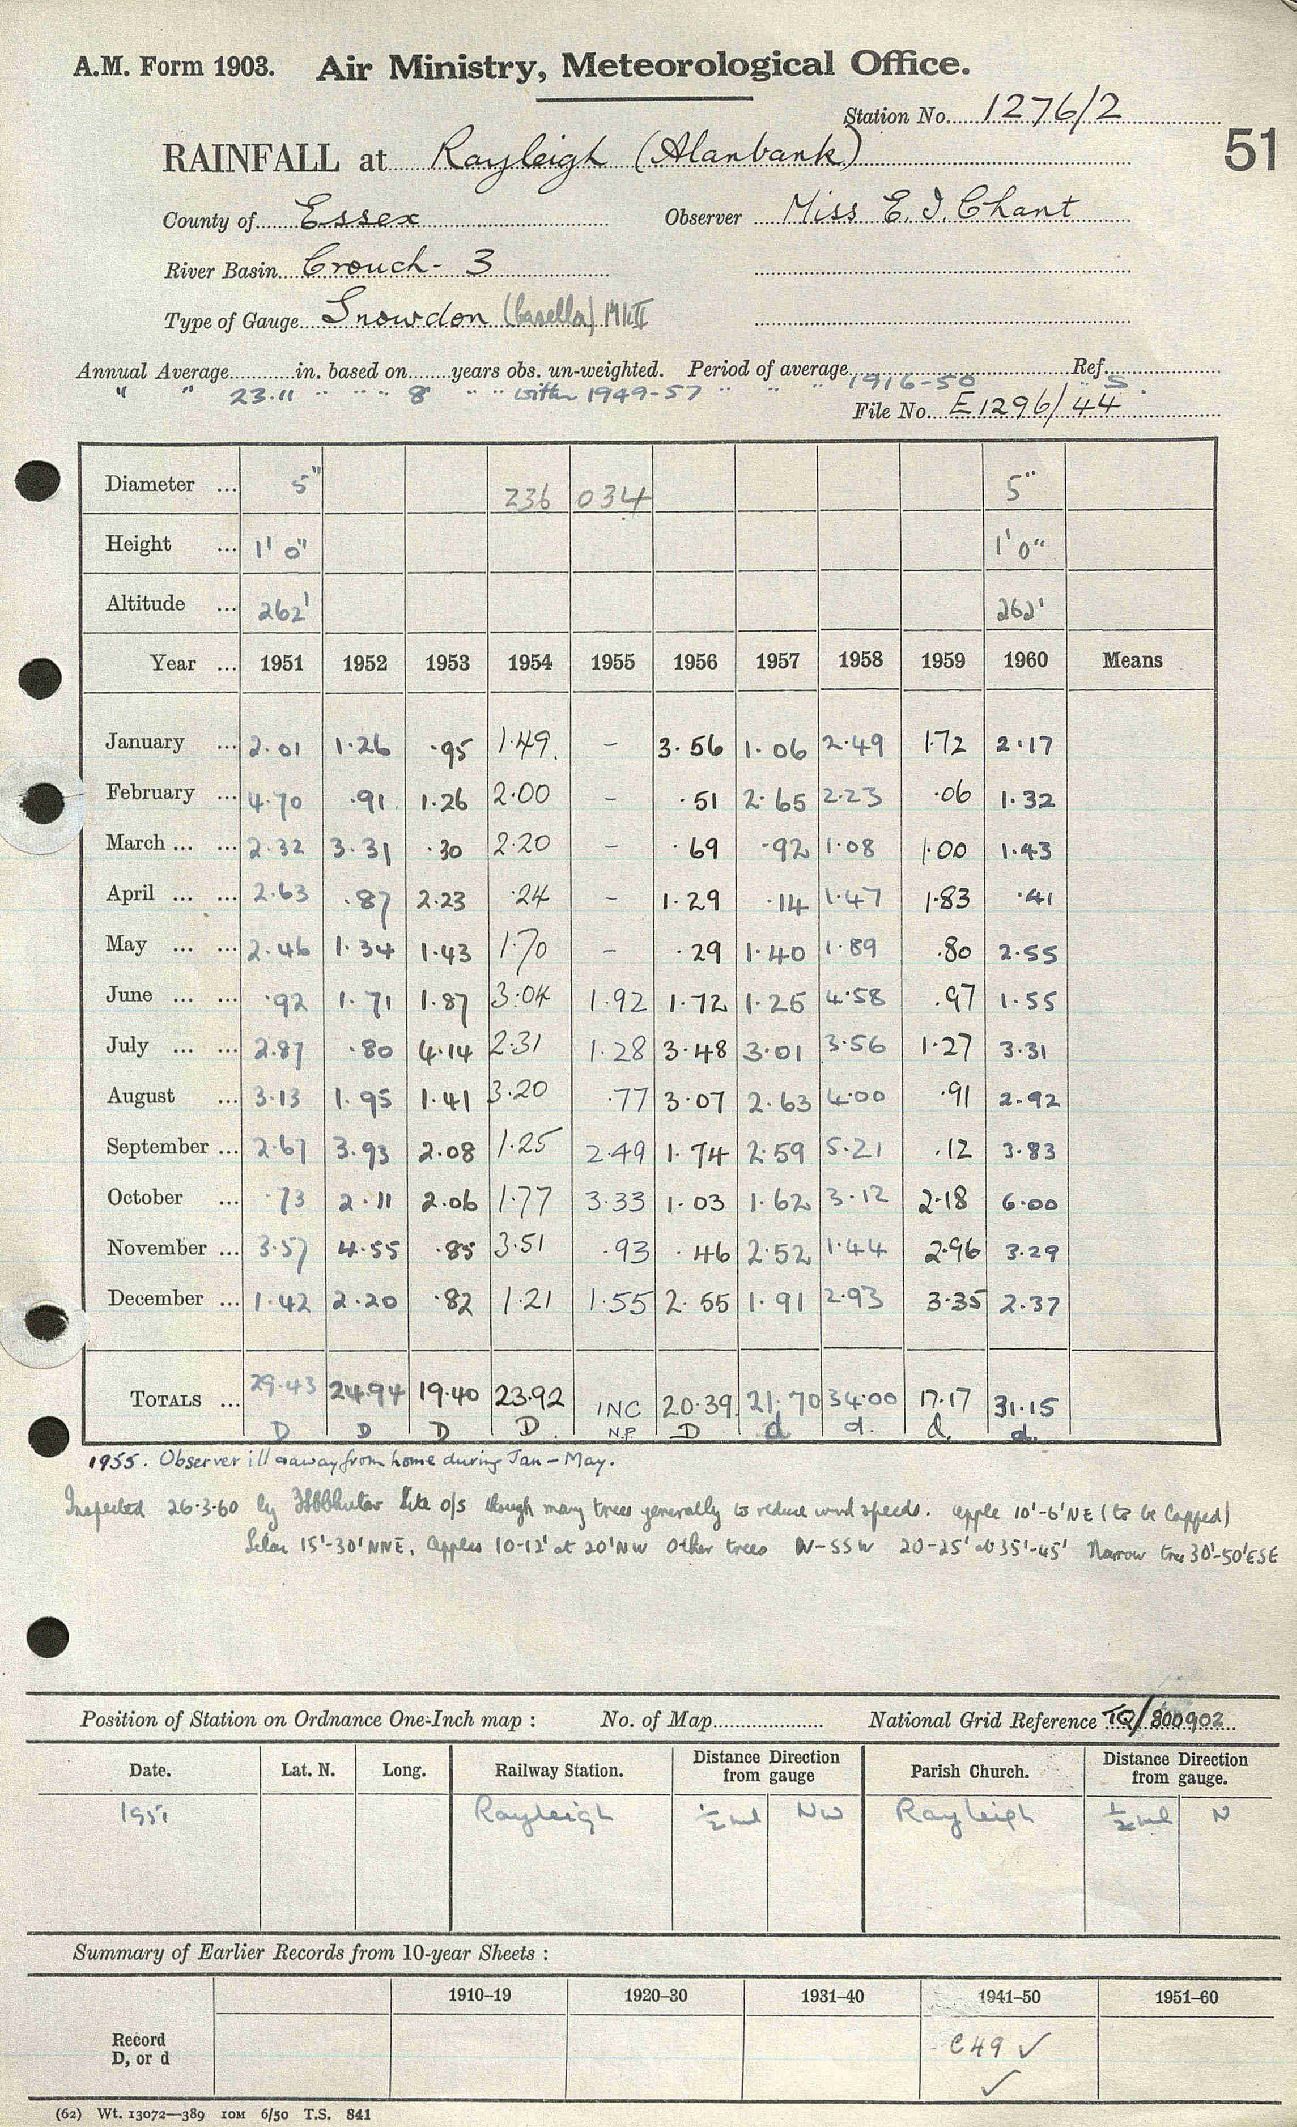 A.M. Form 1903. Air Ministry, Meteorological Office.
Station No. 1276/2
51
RAINFALL at Rayleigh (Alanbank)
County of Essex Observer Miss E. I. Chant
River Basin Crouch - 3
Type of Gauge Snowdon (Casella) MkII
Annual Average in. based on years obs. un-weighted. Period of average Ref.
" " 23.11 " " " 8 " " with 1949-57 " " " 1916-50 " S.
File No. E1296/44
Diameter ... 5" 236 034 5"
Height ... 1' 0" 1' 0"
Altitude ... 262' 262'
Year ... 1951 1952 1953 1954 1955 1956 1957 1958 1959 1960 Means
January ... 2.01 1.26 .95 1.49 - 3.56 1.06 2.49 1.72 2.17
February ... 4.70 .91 1.26 2.00 - .51 2.65 2.23 .06 1.32
March ... ... 2.32 3.31 .30 2.20 - .69 .92 1.08 1.00 1.43
April ... ... 2.63 .87 2.23 .24 - 1.29 .14 1.47 1.83 .41
May ... ... 2.46 1.34 1.43 1.70 - .29 1.40 1.89 .80 2.55
June ... ... .92 1.71 1.87 3.04 1.92 1.72 1.25 4.58 .97 1.55
July ... ... 2.87 .80 4.14 2.31 1.28 3.48 3.01 3.56 1.27 3.31
August ... 3.13 1.95 1.41 3.20 .77 3.07 2.63 4.00 .91 2.92
September ... 2.67 3.93 2.08 1.25 2.49 1.74 2.59 5.21 .12 3.83
October ... .73 2.11 2.06 1.77 3.33 1.03 1.62 3.12 2.18 6.00
November ... 3.57 4.55 .85 3.51 .93 .46 2.52 1.44 2.96 3.29
December ... 1.42 2.20 .82 1.21 1.55 2.55 1.91 2.93 3.35 2.37
TOTALS ... 29.43 24.94 19.40 23.92 INC 20.39 21.70 34.00 17.17 31.15
D D D D N.P. D d d. d. d.
1955. Observer ill & away from home during Jan - May.
Inspected 26.3.60 by Site o/s though many trees generally to reduce wind speeds. Apple 10'-6' NE (to be lopped)
15'-30' NNE, Apples 10-12' at 20' NW Other trees N-SSW 20-25' at 35'-45' Narrow tree 30'-50' ESE
Position of Station on Ordnance One-Inch map : No. of Map National Grid Reference TQ/800902
Date. Lat. N. Long. Railway Station. Distance Direction from gauge Parish Church. Distance Direction from gauge.
1951 Rayleigh ½ ml NW Rayleigh ½ ml N
Summary of Earlier Records from 10-year Sheets :
1910-19 1920-30 1931-40 1941-50 1951-60
Record D, or d C49 ✓
✓
(62) Wt. 13072—389 10M 6/50 T.S. 841